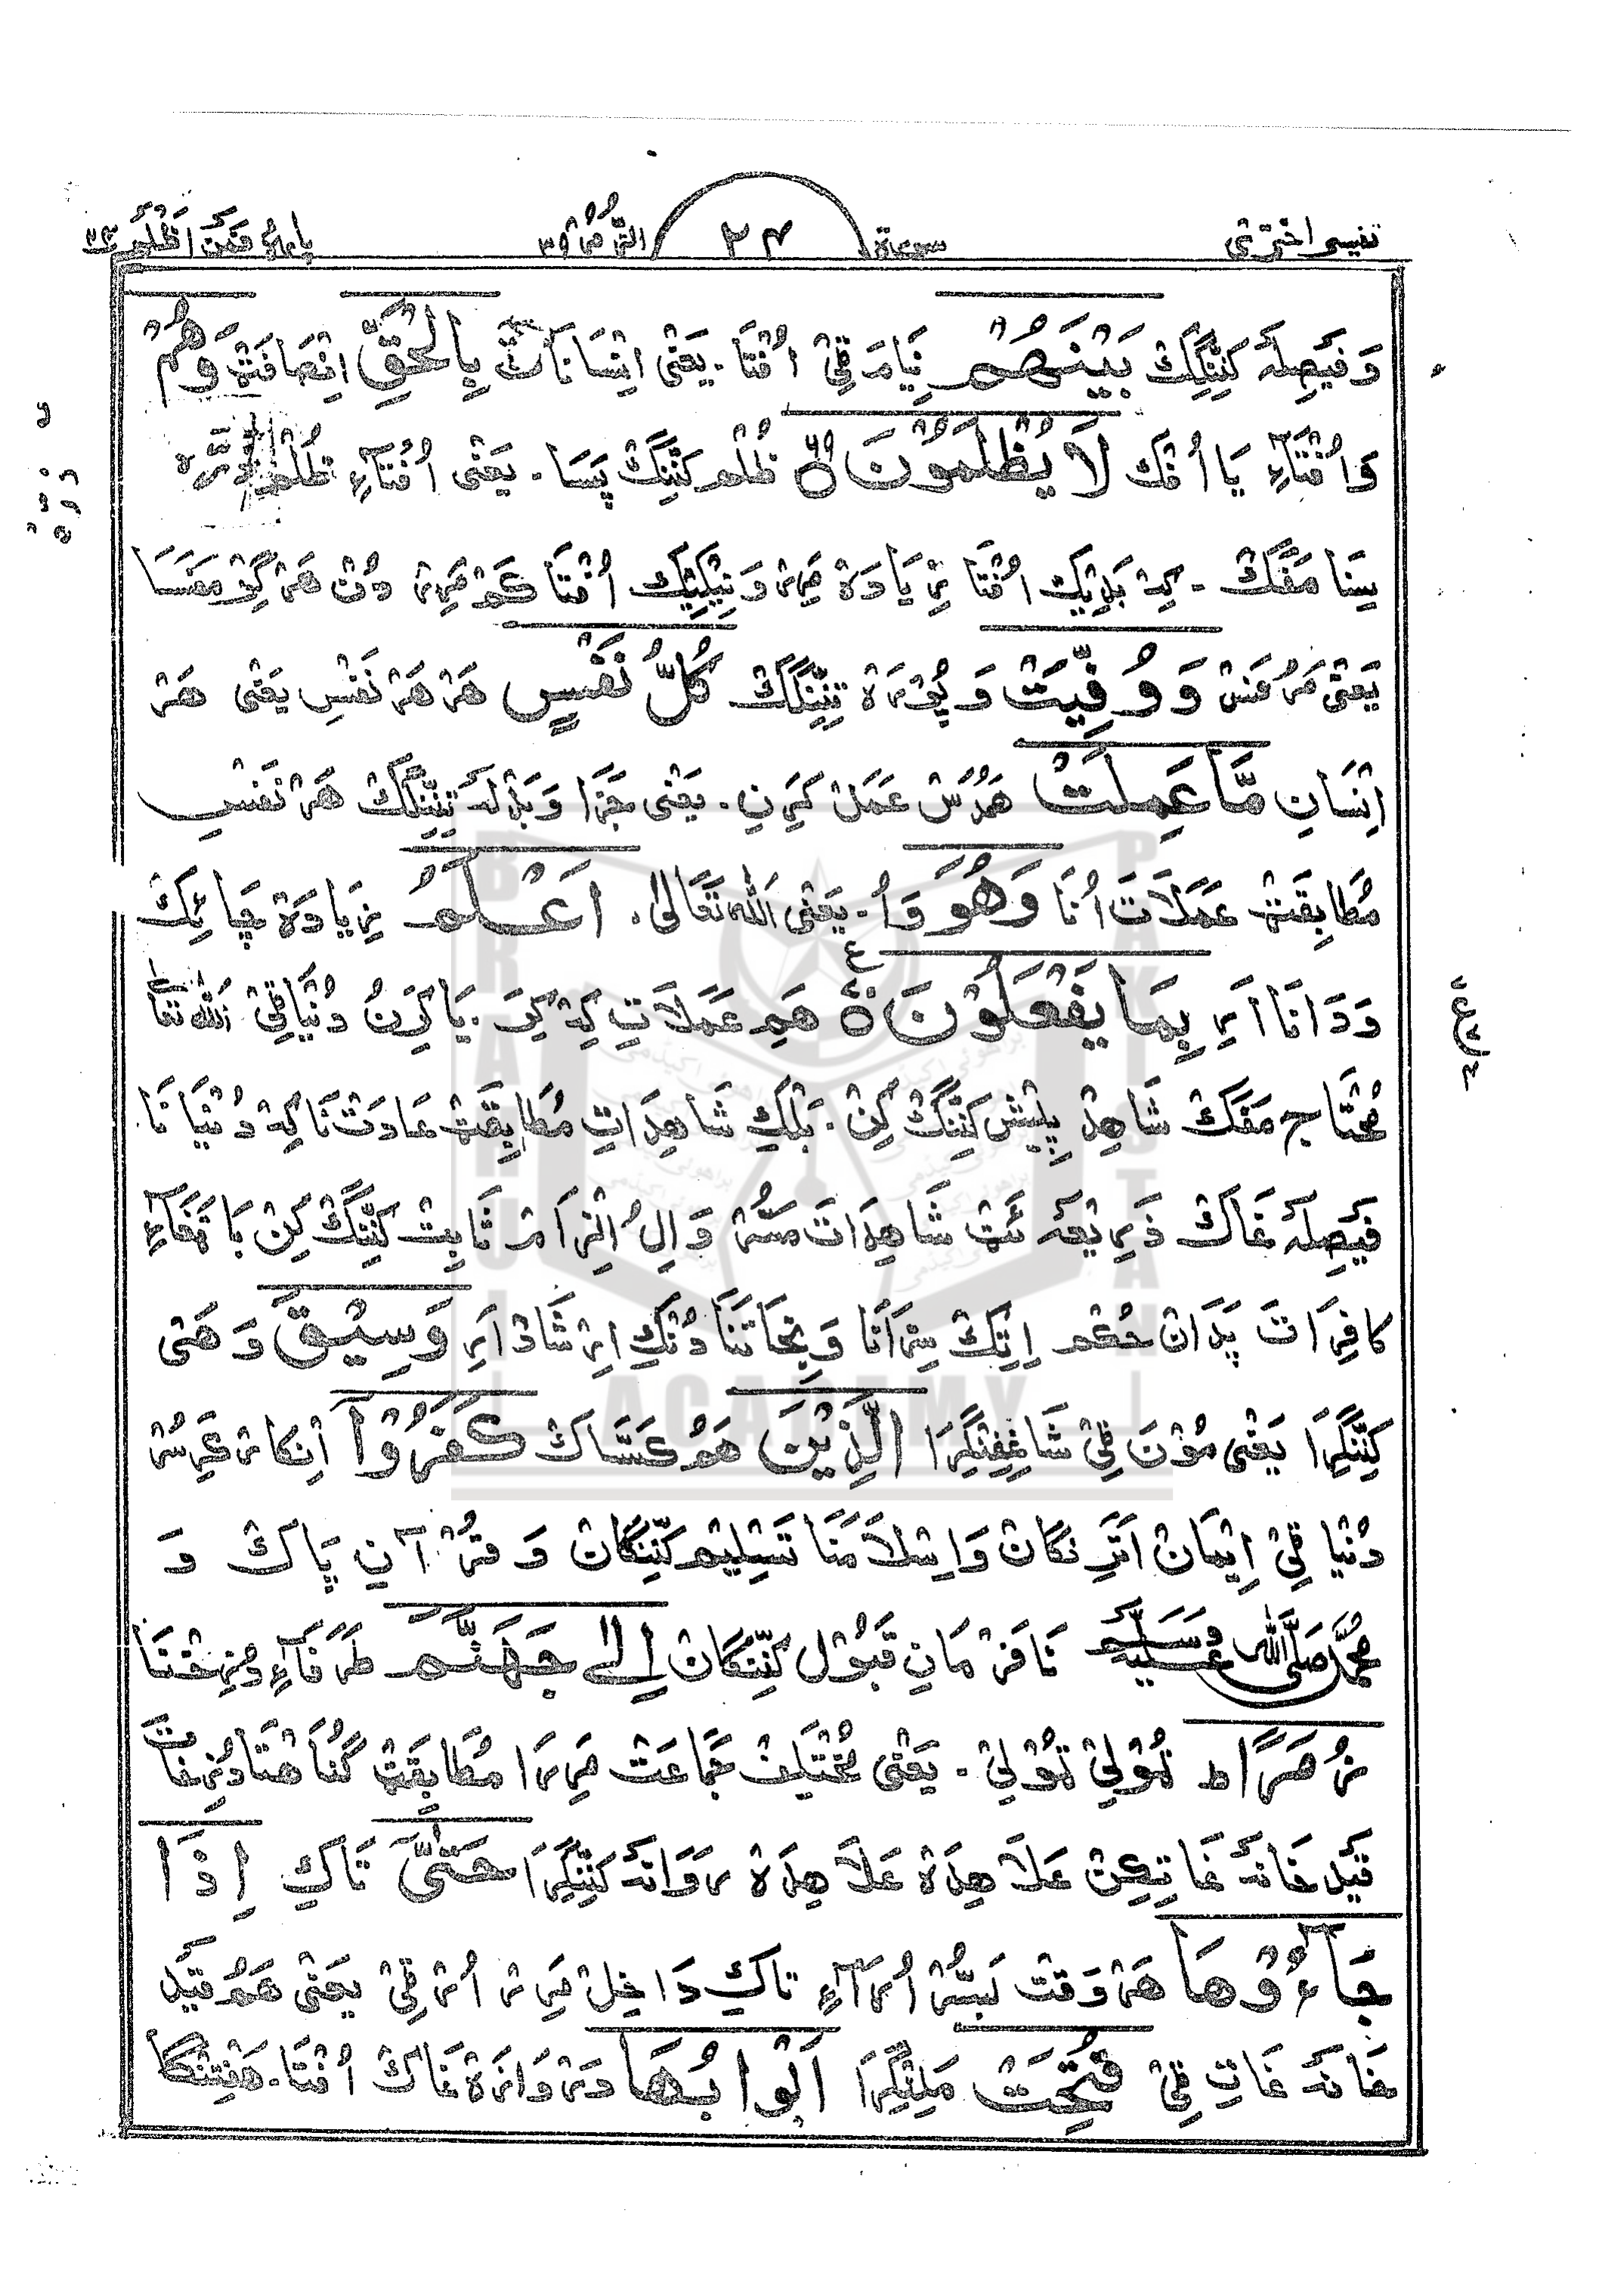 تفسیر اختری
سورۃ
۲۴
الزمر ۳۹
پارہ فَمَنْ اَظْلَمُ ۲۴
وَ فَیصِلَہ کَنِّنگِکْ بَیْنَھُمْ نِیَامَ ٹِیْ اُفْتَا۔ یَعْنٖی اِنْسَانَاتٹْ بِالْحَقِّ اِنْصَافَتْ وَھُمْ
وَ اُفْتَآءِ یَا اُفْک لَا یُظْلَمُوْنَ ۶۹ ظُلْم کَنِّنگِکْ پَسَا۔ یَعْنٖی اُفْتَآءِ ظُلْم ذَرَّہ
بِنَا مَفَکْ۔ کِہ بَدِیْک اُفْتَا زِیَادَہ مَرِیر وَ نِیْکِیْک اُفْتَا کَمْ مَرِیر دُنْ ھَرْ گِزْ مَفَسَا
یَعْنٖی مَرُفَسْ وَوُفِّیَتْ وَ پُوْرَہ تِنِّنگَکْ کُلُّ نَفْسٍ ھَرْ ھَرْ نَفْسِ یَعْنٖی ھَرْ
اِنْسَانِ مَّا عَمِلَتْ ھَمُرْسْ عَمَل کَرِنِ۔ یَعْنٖی جَزَا وَ بَدْلَہ تِنِّنگَکْ ھَرْ نَفْسِ
مُطَابِقَتْ عَمَلَاتَ اُنَا وَھُوَ وَ اُ۔ یَعْنٖی اَللہ تَعَالیٰ۔ اَعْلَمُ زِیَادَہ چَائِکْ
وَ دَانَا اَرِ بِمَا یَفْعَلُوْنَ ۷۰ ع ھَمِ عَمَلَاتِ کِہ کِرَ۔ یَا کَرِنُ دُنْیَا ٹِیْ اَللہ تَعَالیٰ
مُحْتَاج مَفَکْ شَاھِدْ پِیْش کَنِّنگْ کِنْ۔ بَلْکِ شَاھِدَاتِ مُطَابِقَتْ عَادَتْ نَا کِہ دُنْیَا نَا
فَیْصِلَہ غَاکْ ذَرِیْعَہ ئَتْ شَاھِدَاتَ مَسُّر وَ اِلُ اِلْزَامْ ثَابِتْ کَنِّنگْ کِنْ بَاتَفَآءِ
کافِرَاتَ پَدَانْ حُکْم اِتِکْ سَزَانَا وَ نِجَاتَنَا دُنْکِ اِرْشَادْ اَرِ وَسِیْقَ وَ ھَنٖی
کَنِّنگِرَا یَعْنٖی مُوْنَ ٹِیْ شَاغِفِنگِرَا الَّذِیْنَ ھَمُ کَسَّاکْ کَفَرُوْآ اِنکَار کَرِسُرْ
دُنْیَا ٹِیْ اِیْمَانْ اَتَرِنگَانْ وَ اِسْلَامَنَا تَسْلِیْم کَنِّنگَانْ وَ قُرْآنِ پَاکْ وَ
مُحَمَّد صَلَّی اللہ عَلَیْہ وَسَلَّم نَا فَرْمَانِ قَبُوْل کَنِّنگَانْ اِلٰی جَھَنَّمَ طَرَفَآءِ دُزِخْنَا
زُمَرًا ط ٹُوْلِیْ ٹُوْلِیْ۔ یَعْنٖی مُخْتَلِفْ جَمَاعَتْ مَرِرَا مُطَابِقَتْ گُنَاھتَا
قَیْد خَانَہ غَاتِعِنْ عَلَاھِدَہ عَلَاھِدَہ رَوَانَہ کَنِّنگِرَا حَتّٰیٓ تَاکِ اِذَا
جَآءُوْھَا ھَرْ وَقْتْ بَسُّرْ اُرَآءِ تَاکِ دَاخِلْ مَرِرْ اُرْ ٹِیْ یَعْنٖی ھَمُ قَیْد
خَانَہ غَاتِ ٹِیْ فُتِحَتْ مَلِنگِرَا اَبْوَابُھَا دَرْوَازَہ غَاکْ اُفْتَا۔
ذرّہ